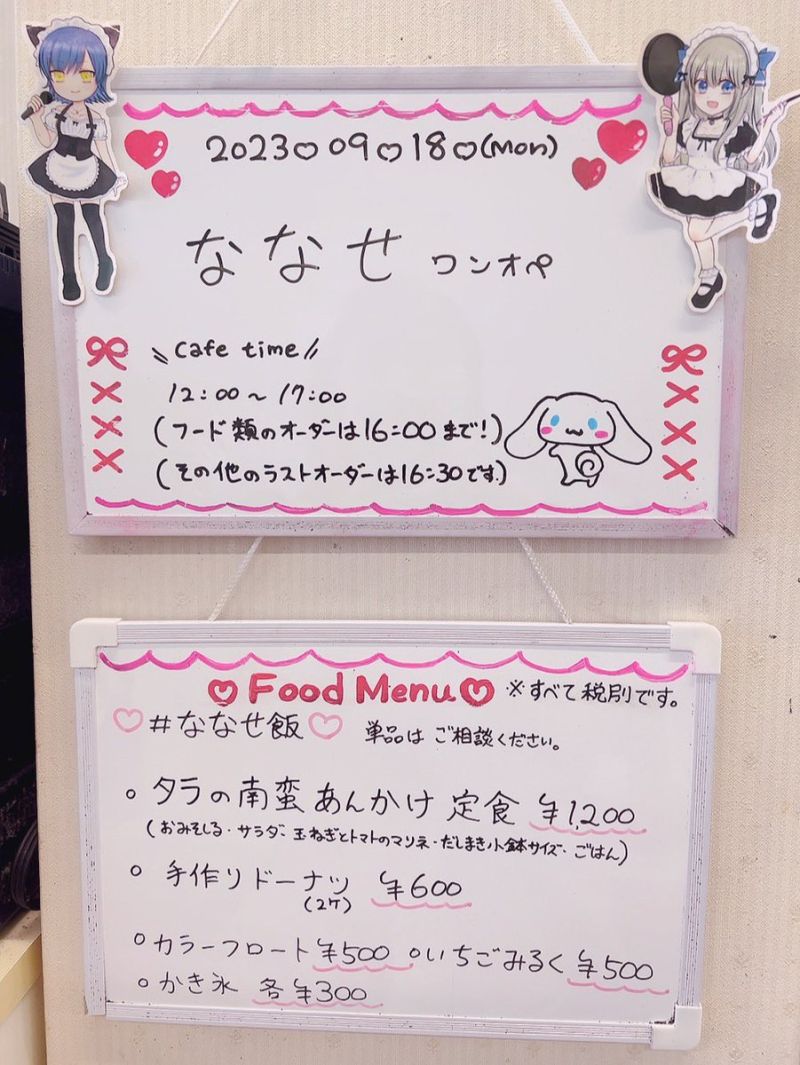 2023♡09♡18♡(Mon)
ななせ ワンオペ
\\ Cafe time //
12:00～17:00
(フード類のオーダーは16:00まで!)
(その他のラストオーダーは16:30です.)
♡Food Menu♡ ※すべて税別です。
♡#ななせ飯♡ 単品はご相談ください。
○ タラの南蛮あんかけ定食 ¥1,200
(おみそしる・サラダ・玉ねぎとトマトのマリネ・だしまき小鉢サイズ・ごはん)
○ 手作りドーナツ ¥600
(2ケ)
○カラーフロート ¥500 ○いちごみるく ¥500
○かき氷 各¥300